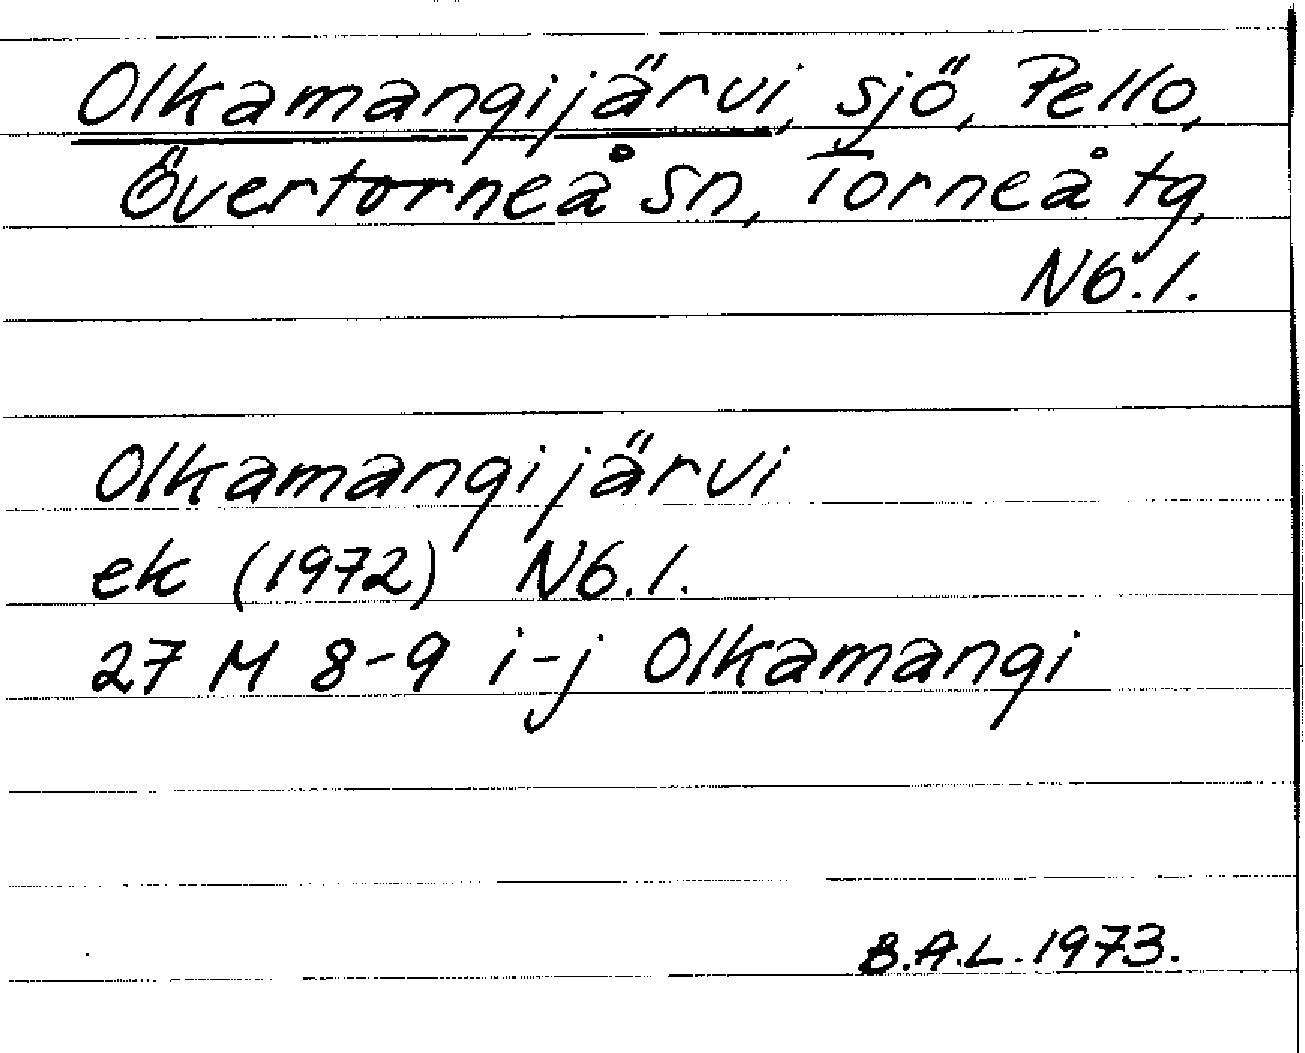 Olkamangijärvi, sjö, Pello,
Övertorneå sn, Torneå tg,
Nb. l.
Olkamangijärvi
ek (1972) Nb. l.
27 M 8-9 i-j Olkamangi
B.A.L. 1973.